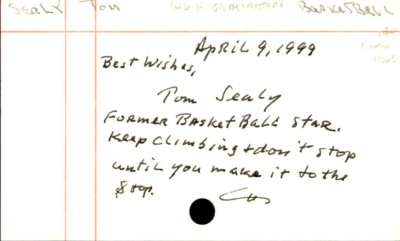 Sealy Tom Basketball
April 9, 1999
Best Wishes,
Tom Sealy
Former BasketBall Star.
Keep climbing + don't stop
until you make it to the
Stop.